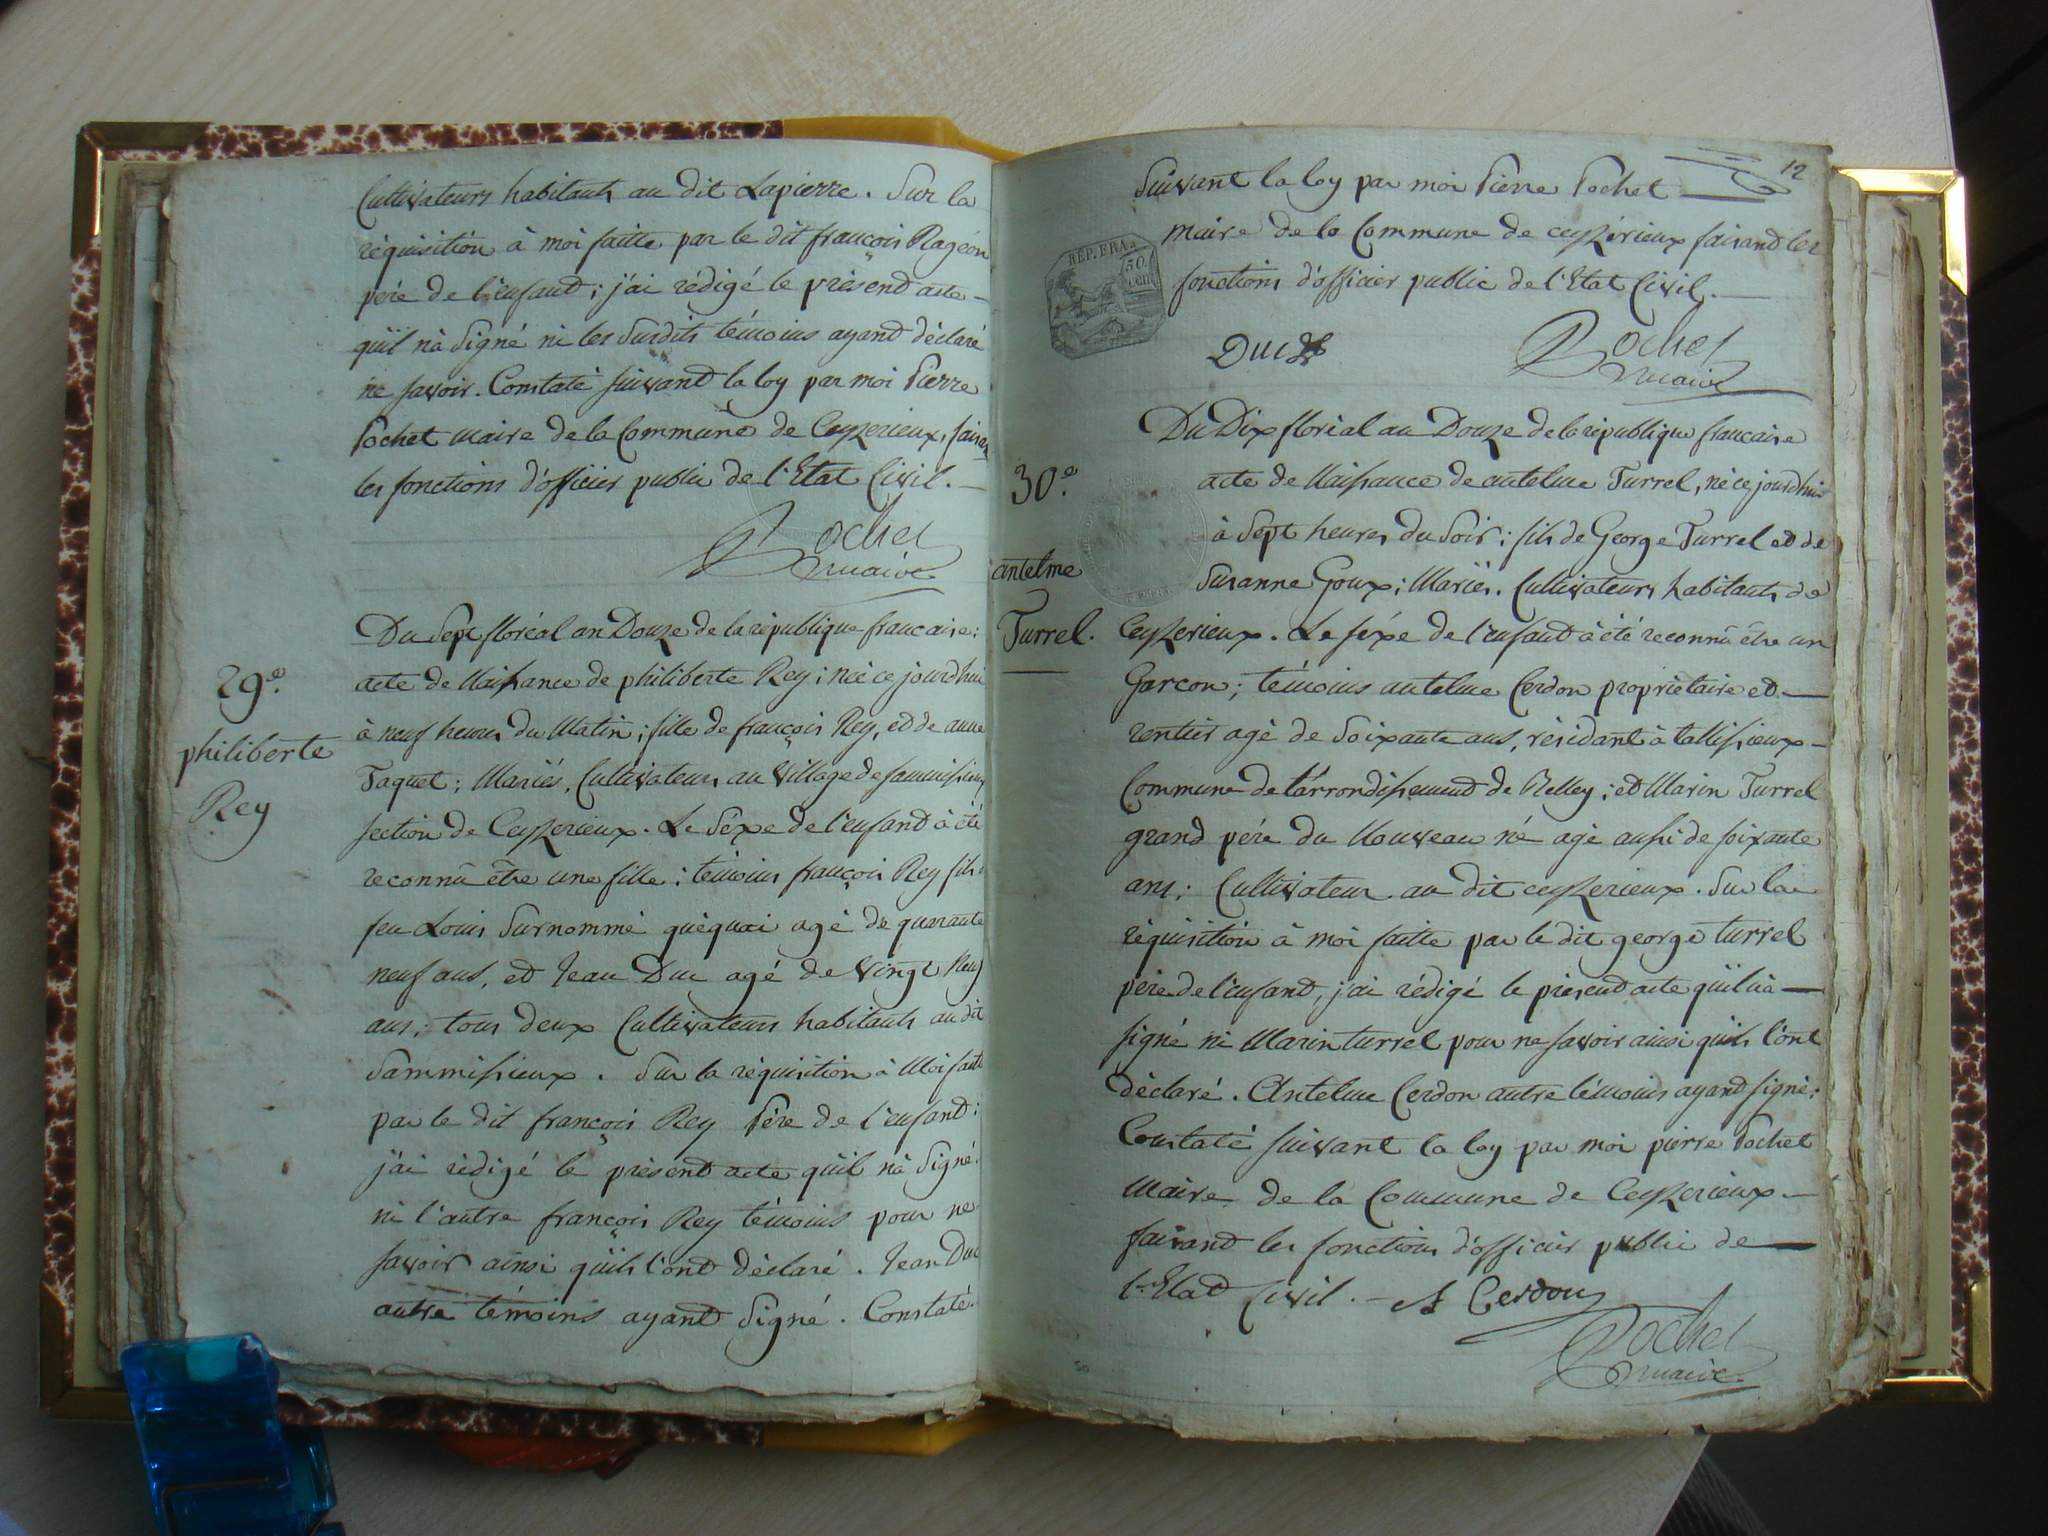 Cultivateurs habitants au dit Lapierre. Sur la
réquisition à moi faitte par le dit françois Rageon
père de l'enfant ; j'ai rédigé le présend acte
qu'il nà Signé ni les Susdits témoins ayand déclaré
ne savoir. Constaté suivand la loy par moi Pierre
Pochet maire de la Commune de Ceyzerieux, faisan
les fonctions d'officier public de l'Etat Civil.
Pochet
maire
29e.
philiberte
Rey
Du Sept floréal an Douze de la république francaise ;
acte de Naissance de philiberte Rey ; née ce jourdhui
à neuf heures du Matin ; fille de françois Rey, et de anne
Taquet ; Mariés, Cultivateurs au Village de Sammissieux
section de Ceyzerieux. Le Séxe de l'enfand à été
reconnû être une fille ; témoins françois Rey fils
feu Louis Surnommé quéquoi agé de quarante
neuf ans, et Jean Duc agé de vingt Neuf
ans ; tous deux Cultivateurs habitants au dit
Sammissieux. Sur la réquisition à Moi faitte
par le dit françois Rey Père de l'enfand ;
j'ai rédigé le présend acte qu'il nà Signé
ni l'autre françois Rey témoins pour ne
savoir ainsi qu'ils l'ond déclaré. Jean Duc
autre témoins ayand Signé. Constaté
12
Suivant la loy par moi Pierre Pochet
maire de la Commune de ceyzérieux faisand les
fonctions d'officier public de l'Etat Civil.
REP. FRA.
50
cen
Duc
Pochet
maire
30e.
antelme
Turrel.
Du Dix florial an Douze de la république francaise
acte de Naissance de antelme Turrel, né ce jourdhui
à Sept heures du Soir ; fils de George Turrel et de
Susanne Goux ; Mariés. Cultivateurs habitants de
Ceyzerieux. Le séxe de l'enfand à été reconnû être un
Garcon ; témoins antelme Cerdon propriétaire et
rentier agé de Soixante ans, résidant à tallissieux
Commune de l'arrondissemend de Belley ; et Marin Turrel
grand père du Nouveau né agé aussi de soixante
ans ; Cultivateur au dit ceyzerieux. Sur la
réquisition à moi faitte par le dit george turrel
père de l'enfand, j'ai rédigé le présend acte qu'il nà
signé ni Marin turrel pour ne savoir ainsi qu'ils l'ont
déclaré. Antelme Cerdon autre témoins ayand signé ;
Constaté suivant la loy par moi pierre Pochet
Maire de la Commune de Ceyzerieux
faisand les fonctions d'officier public de
l'Etad Civil. A Cerdon
Pochet
maire